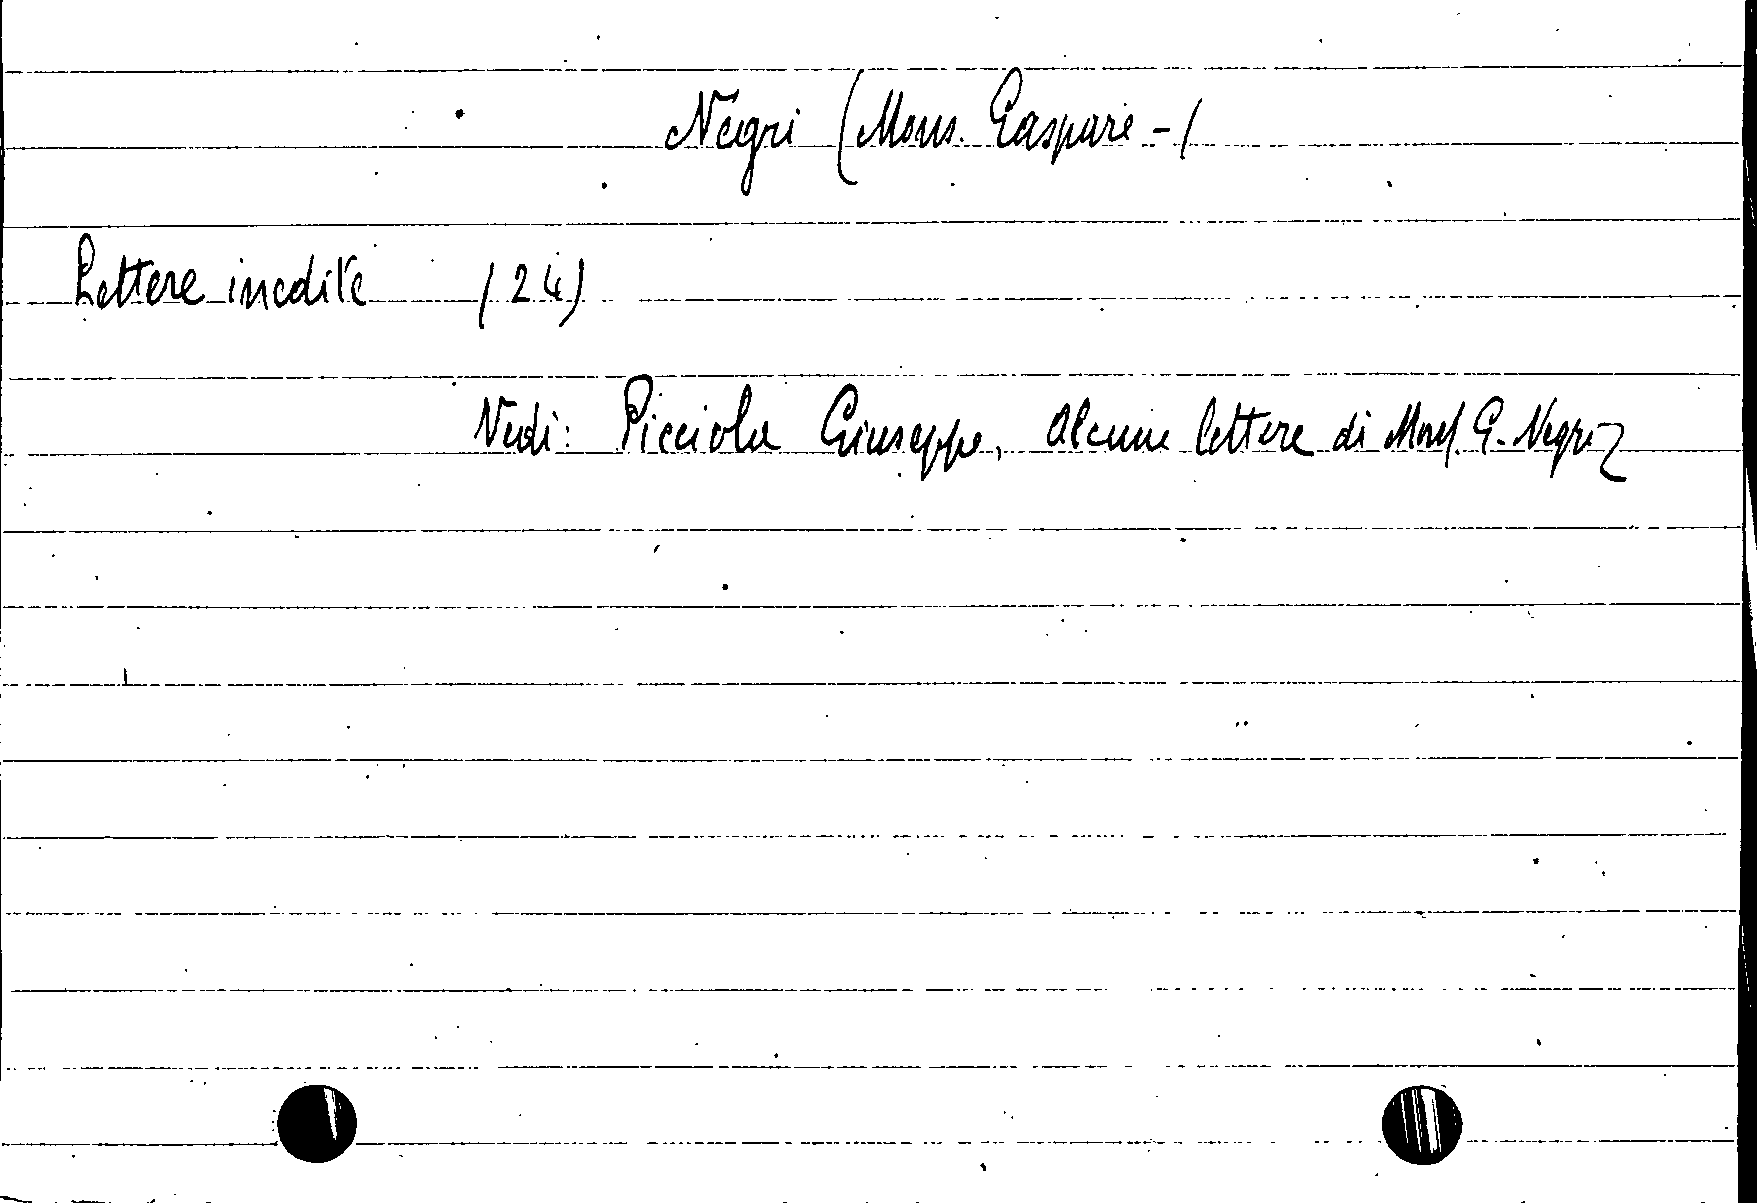 Negri (Mons. Gaspare - )
Lettere inedite (24)
Vedi: Picciola Giuseppe, Alcune lettere di Mons. G. Negri